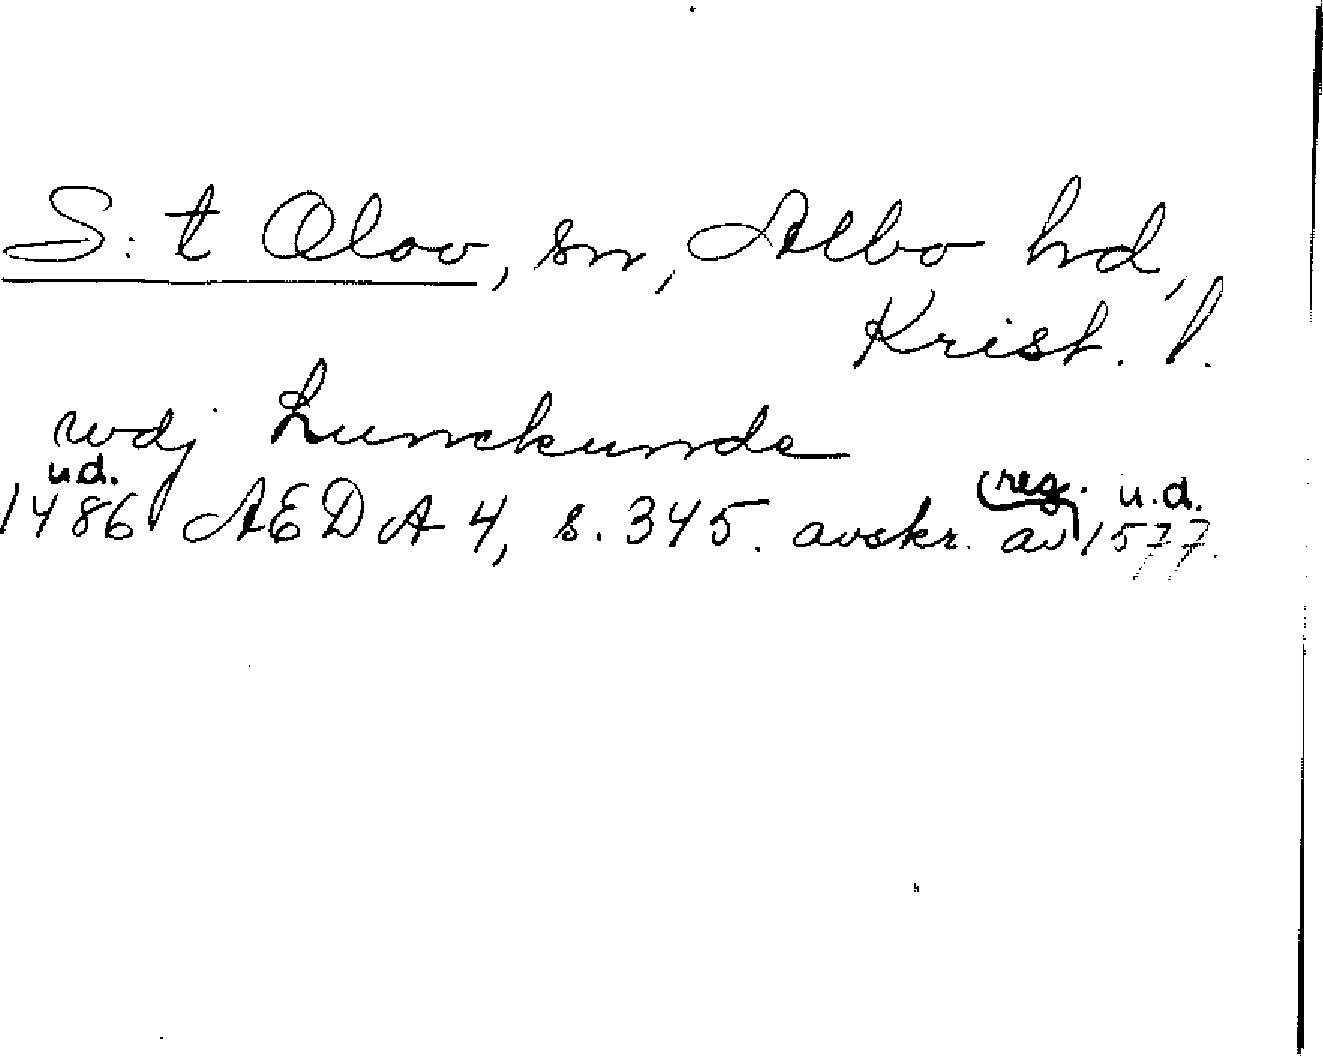 S:t Olov, sn, Albo hd,
Krist. l.
wdj Lunckunde
1486 u.d. AEDA 4, s. 345. avskr. av reg. 1577 u.d.